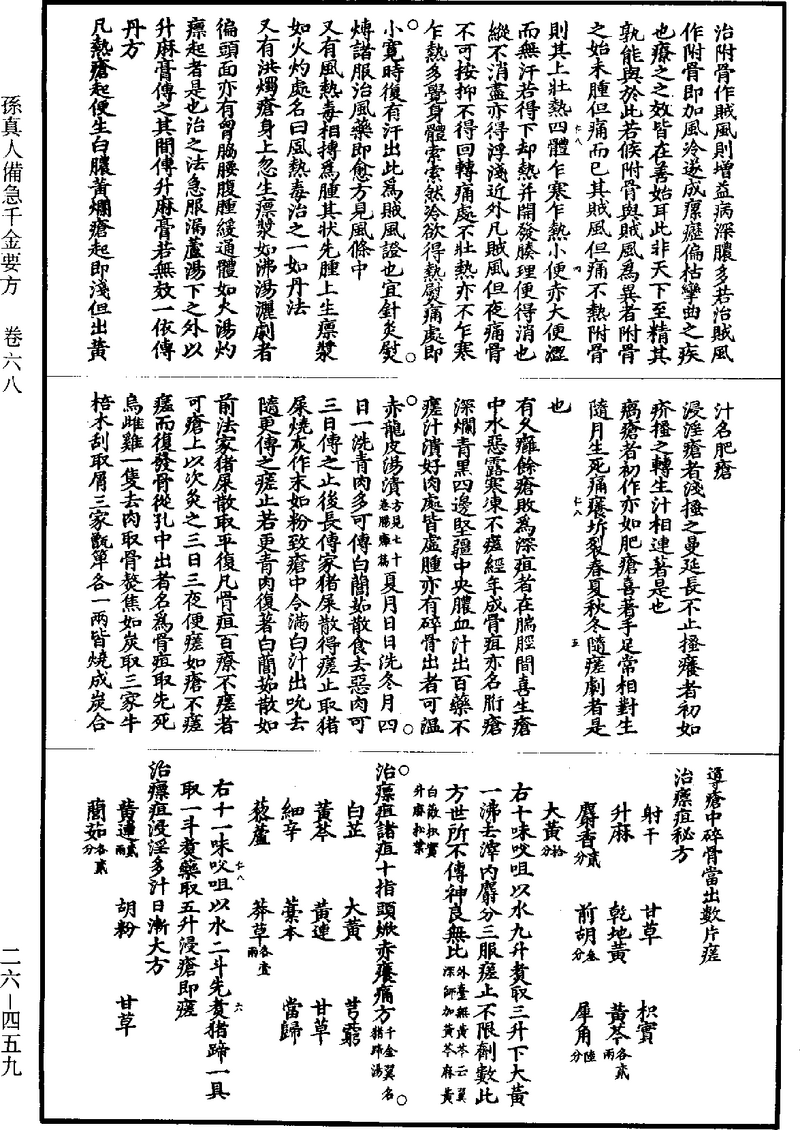 孫真人備急千金要方　卷六八
治附骨作賊風則增益病深膿多若治賊風
作附骨即加風冷遂成瘰癧偏枯攣曲之疾
也療之之效皆在善始耳此非天下至精其
孰能與於此若候附骨與賊風為異者附骨
之始未腫但痛而已其賊風但痛不熱附骨
則其上壯熱四體乍寒乍熱小便赤大便澀
而無汗若得下却熱并開發腠理便得消也
縱不消盡亦得浮淺近外凡賊風但夜痛骨
不可按抑不得回轉痛處不壯熱亦不乍寒
乍熱多覺身體索索然冷欲得熱熨痛處即
小寬時復有汗出此為賊風證也宜針灸熨
煿諸服治風藥即愈方見風條中
又有風熱毒相搏為腫其狀先腫上生瘭漿
如火灼處名曰風熱毒治之一如丹法
又有洪燭瘡身上忽生瘭漿如沸湯灑劇者
徧頭面亦有胷脇腰腹腫緩通體如火湯灼
瘭起者是也治之法急服漏蘆湯下之外以
升麻膏傅之其間傅升麻膏若無效一依傅
丹方
凡熱瘡起便生白膿黃爛瘡起即淺但出黃
汁名肥瘡
浸淫瘡者淺搔之曼延長不止搔癢者初如
疥搔之轉生汁相連著是也
瘑瘡者初作亦如肥瘡喜著手足常相對生
隨月生死痛癢坼裂春夏秋冬隨瘥劇者是
也
有久癰餘瘡敗為深疽者在腨脛間喜生瘡
中水惡露寒凍不瘥經年成骨疽亦名胻瘡
深爛青黑四邊堅彊中央膿血汁出百藥不
瘥汁潰好肉處皆虛腫亦有碎骨出者可溫
赤龍皮湯漬方見七十卷腸癰篇夏月日日洗冬月四
日一洗青肉多可傅白䕡茹散食去惡肉可
三日傅之止後長傅家猪屎散得瘥止取猪
屎燒灰作末如粉致瘡中令滿白汁出吮去
隨更傅之瘥止若更青肉復著白䕡茹散如
前法家猪屎散取平復凡骨疽百療不瘥者
可瘡上以次灸之三日三夜便瘥如瘡不瘥
瘥而復發骨從孔中出者名為骨疽取先死
烏雌雞一隻去肉取骨熬焦如炭取三家牛
棓木刮取屑三家甑箄各一兩皆燒成炭合
導瘡中碎骨當出數片瘥
治瘭疽秘方
射干　甘草　枳實
升麻　乾地黃　黃芩各貳兩
麝香貳分　前胡叁分　犀角陸分
大黃拾分
右十味㕮咀以水九升煑取三升下大黃
一沸去滓內麝分三服瘥止不限劑數此
方世所不傳神良無比外臺無黃芩云翼深師加黃芩麻黃白薇枳實升麻松葉
治瘭疽諸疽十指頭焮赤癢痛方千金翼名猪蹄湯
白芷　大黃　芎藭
黃芩　黃連　甘草
細辛　藁本　當歸
藜蘆　莽草各壹兩
右十一味㕮咀以水二斗先煑猪蹄一具
取一斗煑藥取五升浸瘡即瘥
治瘭疽浸淫多汁日漸大方
黃連貳兩　胡粉　甘草
䕡茹各貳分
二六－四五九